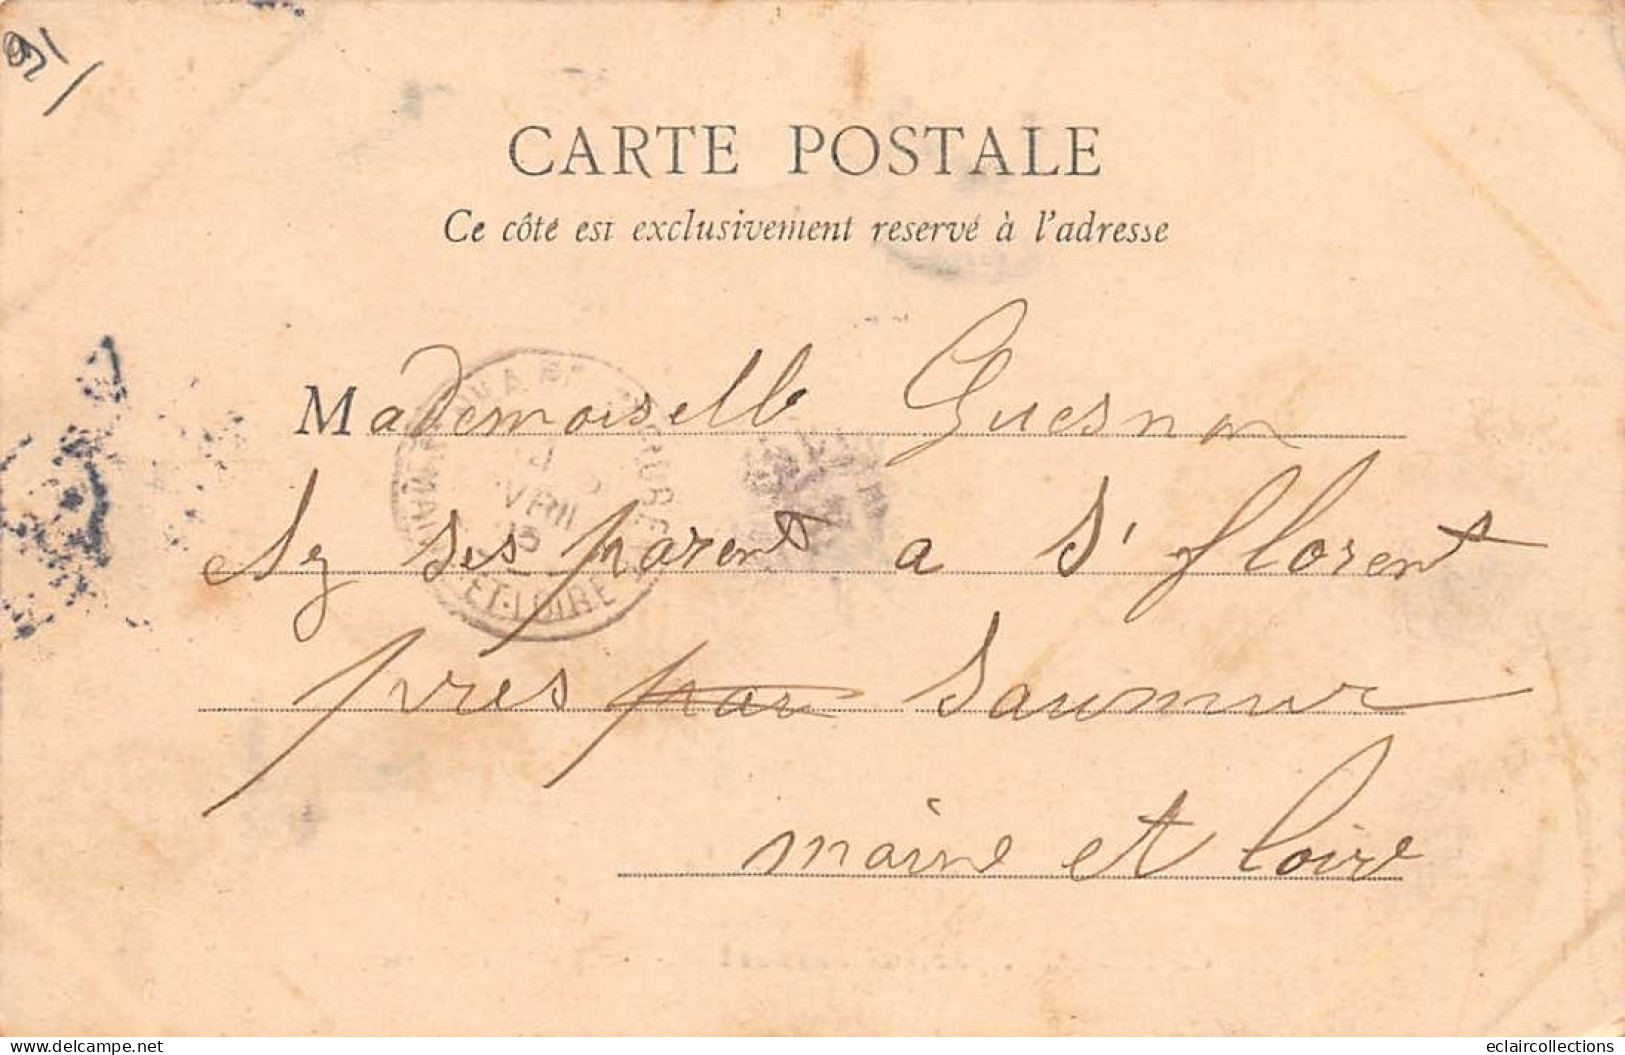 91
CARTE POSTALE
Ce côté est exclusivement reservé à l'adresse
Mademoiselle Guesnon
ses parent a St florent
pres par Saumur
maine et loire
AVRIL
ET-LOIRE
eclaircollections